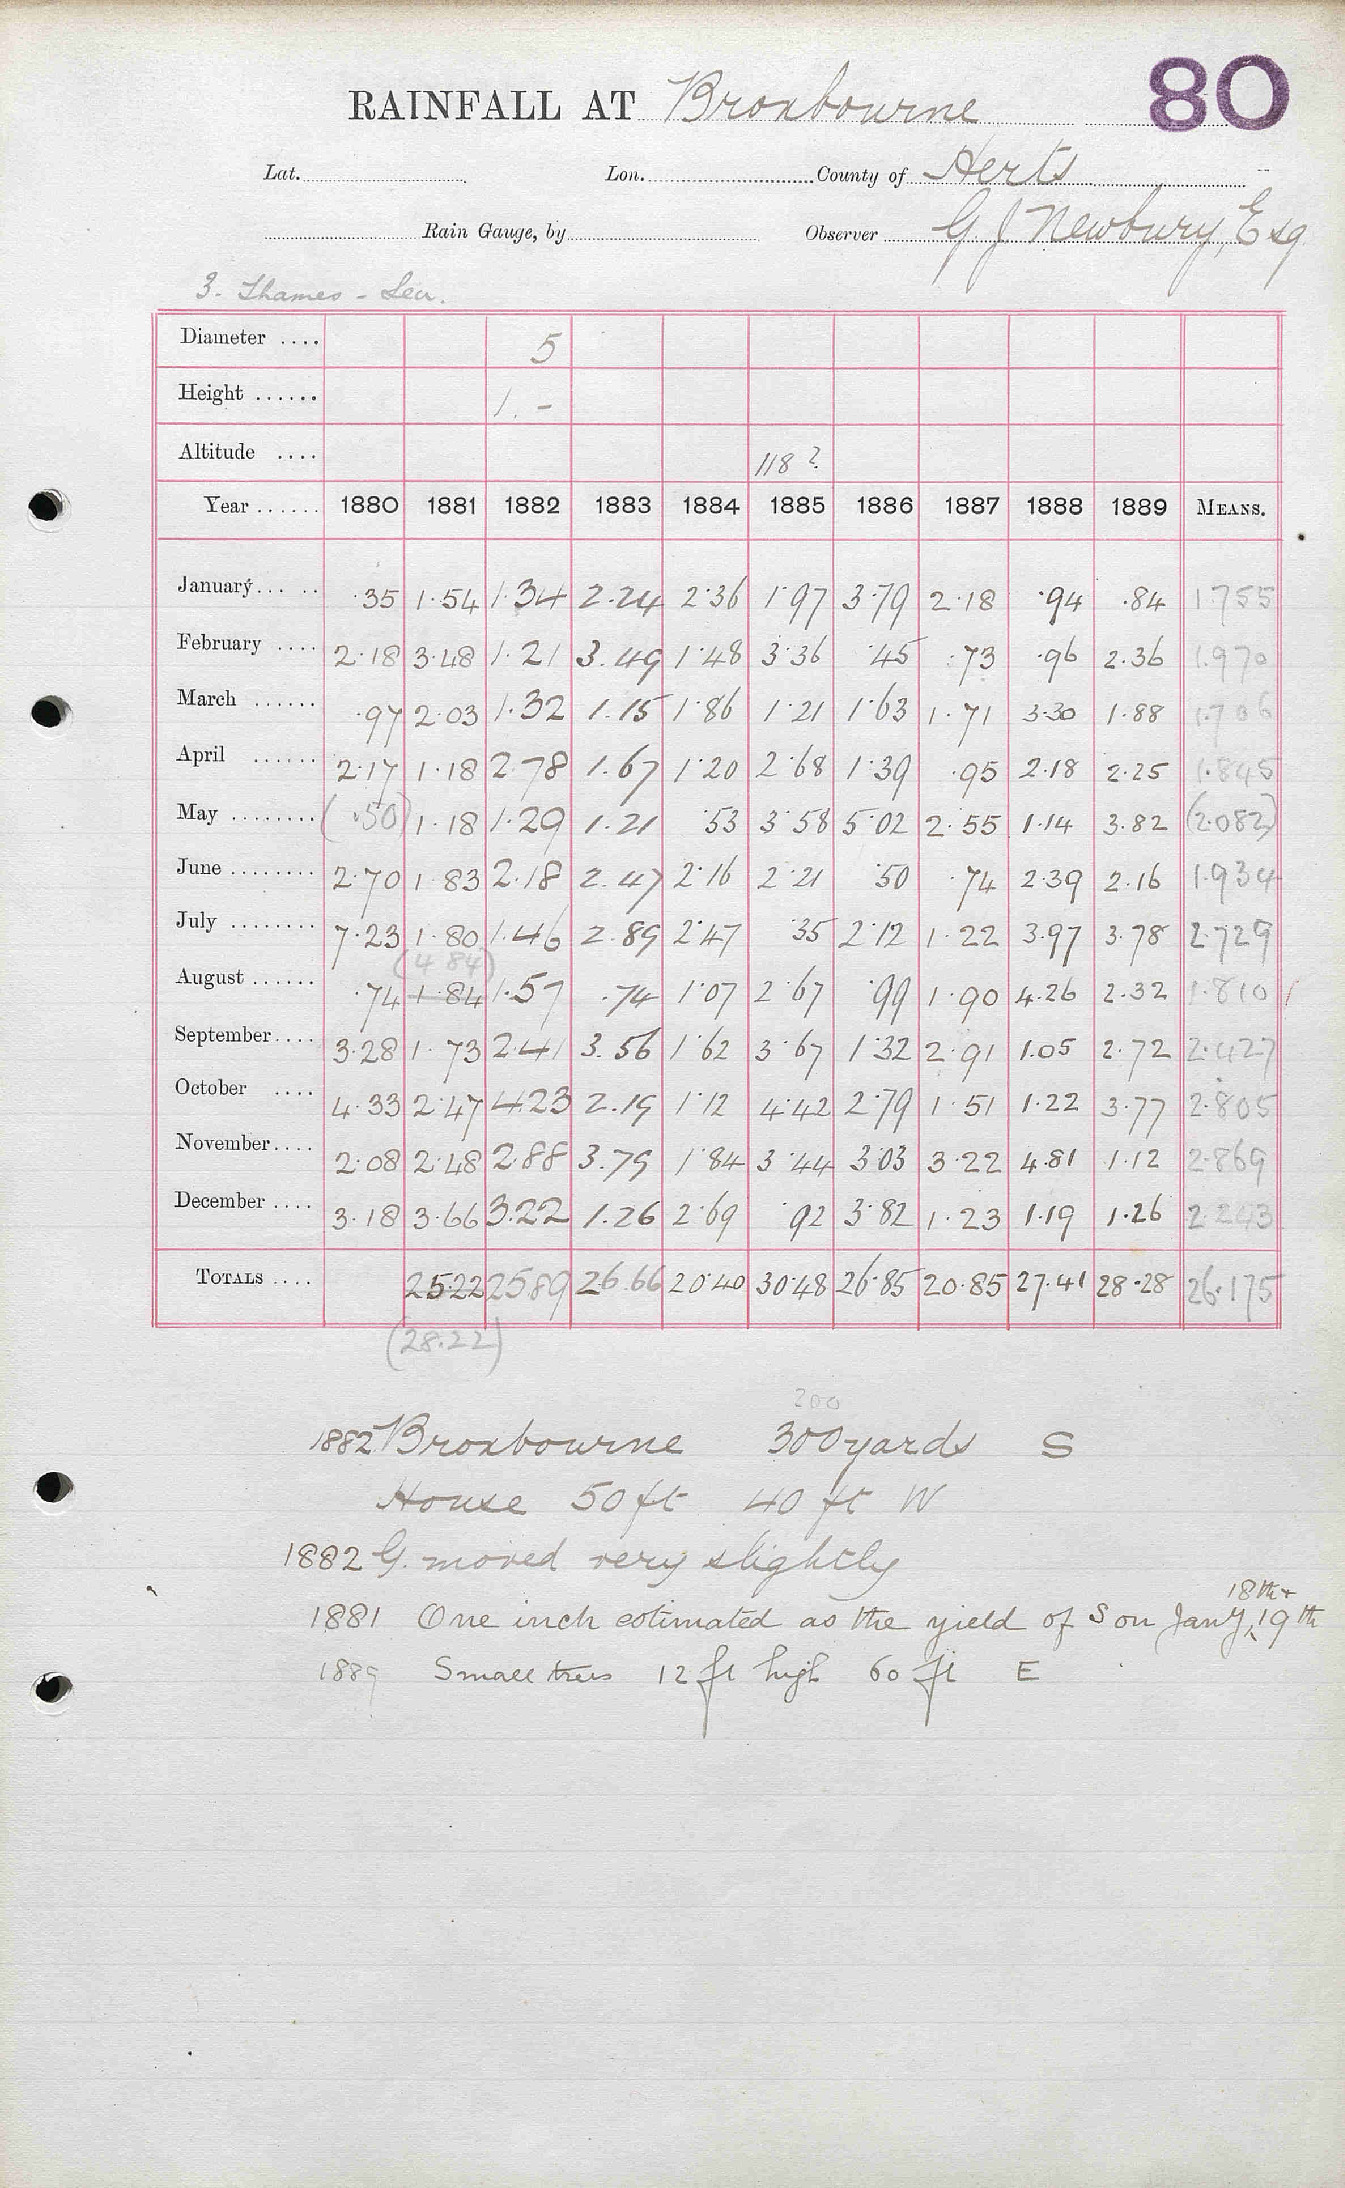 80
RAINFALL AT Broxbourne
Lat. Lon. County of Herts
Rain Gauge, by Observer G J Newbury, Esq
3. Thames - Lea.
Diameter .... 5
Height ...... 1. -
Altitude .... 118 ?
Year ...... 1880 1881 1882 1883 1884 1885 1886 1887 1888 1889 MEANS.
January ..... .35 1.54 1.34 2.24 2.36 1.97 3.79 2.18 .94 .84 1.755
February .... 2.18 3.48 1.21 3.49 1.48 3.36 .45 .73 .96 2.36 1.970
March ...... .97 2.03 1.32 1.15 1.86 1.21 1.63 1.71 3.30 1.88 1.706
April ...... 2.17 1.18 2.78 1.67 1.20 2.68 1.39 .95 2.18 2.25 1.845
May ........ (.50) 1.18 1.29 1.21 .53 3.58 5.02 2.55 1.14 3.82 (2.082)
June ........ 2.70 1.83 2.18 2.47 2.16 2.21 .50 .74 2.39 2.16 1.934
July ........ 7.23 1.80 1.46 2.89 2.47 .35 2.12 1.22 3.97 3.78 2.729
(4.84)
August ...... .74 1.84 1.57 .74 1.07 2.67 .99 1.90 4.26 2.32 1.810
September .... 3.28 1.73 2.41 3.56 1.62 3.67 1.32 2.91 1.05 2.72 2.427
October .... 4.33 2.47 4.23 2.19 1.12 4.42 2.79 1.51 1.22 3.77 2.805
November .... 2.08 2.48 2.88 3.79 1.84 3.44 3.03 3.22 4.81 1.12 2.869
December .... 3.18 3.66 3.22 1.26 2.69 .92 3.82 1.23 1.19 1.26 2.243
TOTALS .... 25.22 25.89 26.66 20.40 30.48 26.85 20.85 27.41 28.28 26.175
(28.22)
200
1882 Broxbourne 300 yards S
House 50 ft 40 ft W
1882 G. moved very slightly
18th +
1881 One inch estimated as the yield of S on Jany 19th
1889 Small trees 12 ft high 60 ft E